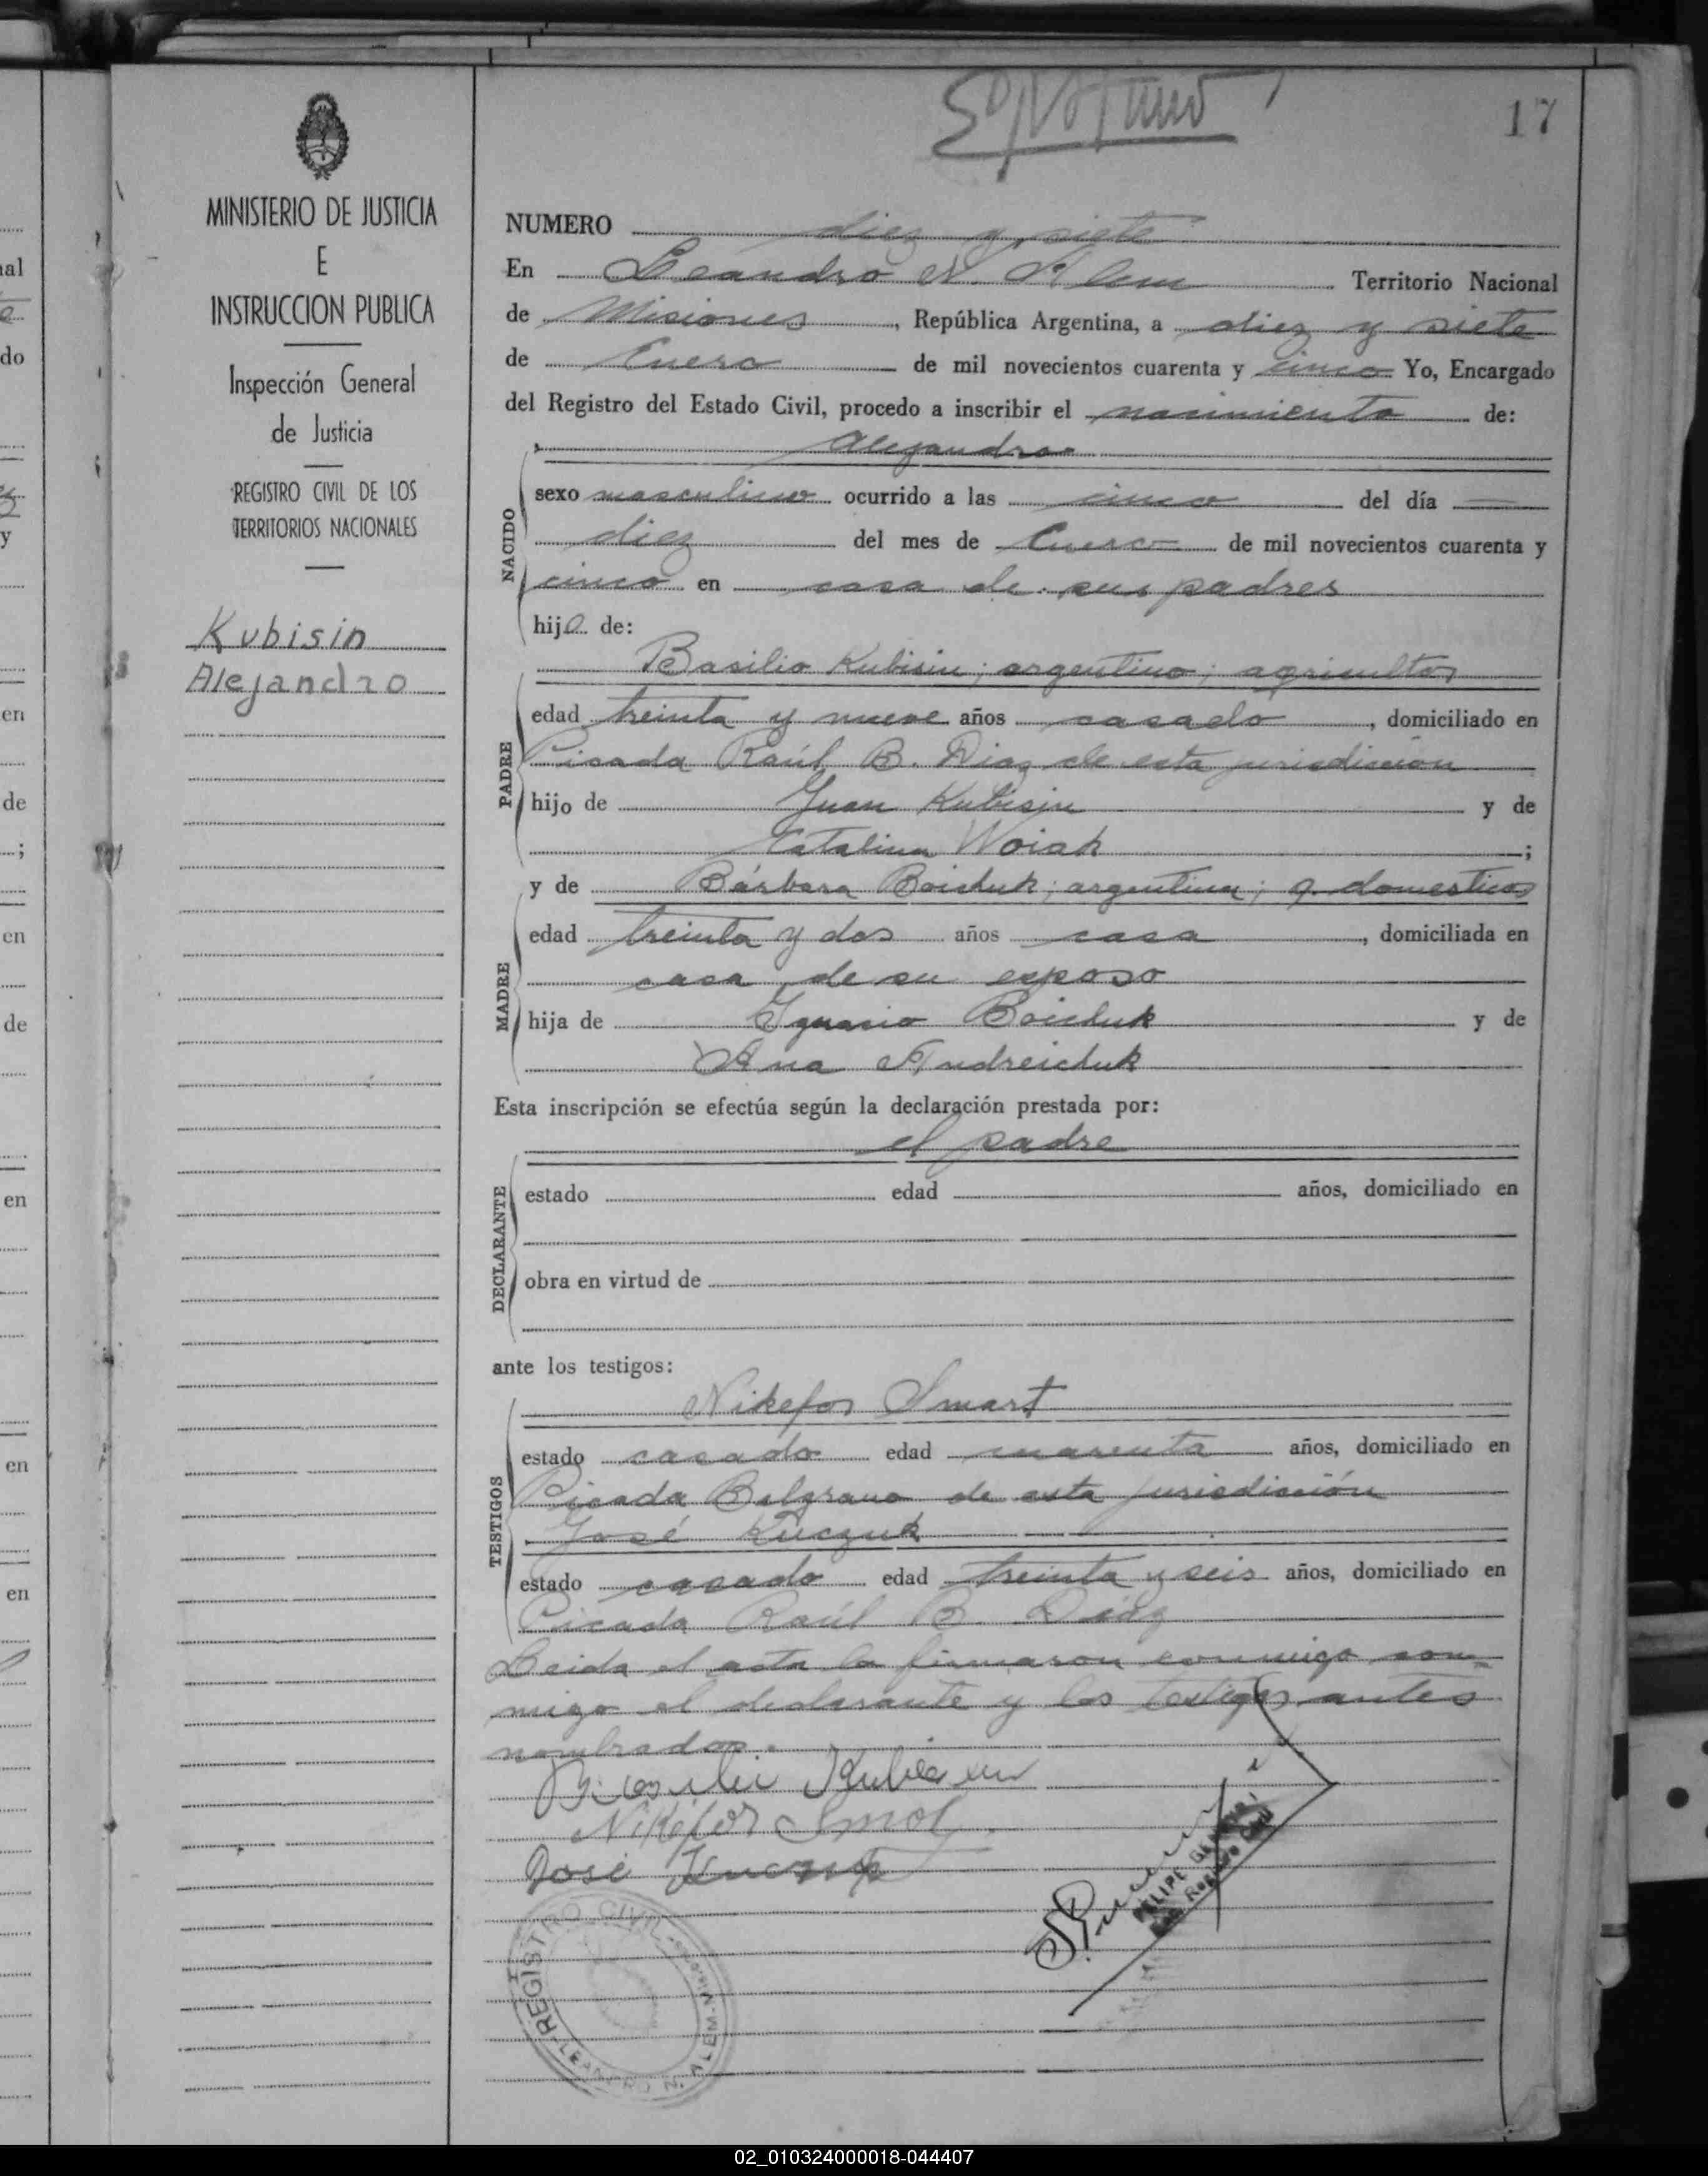 17
MINISTERIO DE JUSTICIA
E
INSTRUCCION PUBLICA
Inspección General
de Justicia
REGISTRO CIVIL DE LOS
TERRITORIOS NACIONALES
Kubisin
Alejandro
NUMERO diez y siete
En Leandro N. Alem Territorio Nacional
de Misiones, República Argentina, a diez y siete
de Enero de mil novecientos cuarenta y cinco Yo, Encargado
del Registro del Estado Civil, procedo a inscribir el nacimiento de:
Alejandro
NACIDO
sexo masculino ocurrido a las cinco del día
diez del mes de Enero de mil novecientos cuarenta y
cinco en casa de sus padres
hijo de:
Basilio Kubisin; argentino; agricultor
PADRE
edad treinta y nueve años casado, domiciliado en
Picada Raúl B. Diaz de esta jurisdicción
hijo de Juan Kubisin y de
Catalina Woiak;
y de Bárbara Boichuk; argentina; q. domesticos
MADRE
edad treinta y dos años casa, domiciliada en
casa de su esposo
hija de Ignacio Boichuk y de
Ana Andreichuk
Esta inscripción se efectúa según la declaración prestada por:
el padre
DECLARANTE
estado edad años, domiciliado en
obra en virtud de
ante los testigos:
Nikefor Smart
TESTIGOS
estado casado edad cuarenta años, domiciliado en
Picada Belgrano de esta jurisdicción
José Kuczuk
estado casado edad treinta y seis años, domiciliado en
Picada Raúl B. Diaz
Leida el acta la firmaron conmigo con=
migo el declarante y los testigos antes
nombrados.
Kubisin
Nikefor
José
REGISTRO CIVIL
LEANDRO N. ALEM
FELIPE
02_010324000018-044407